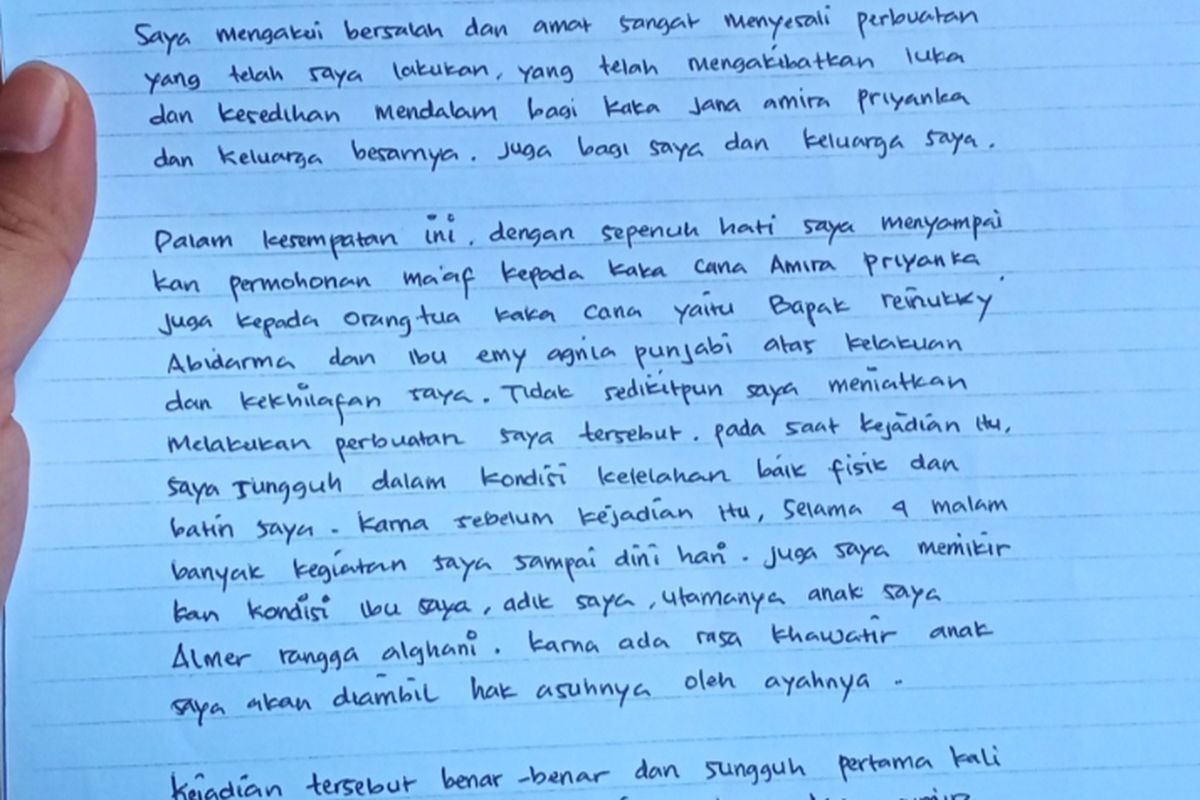 Saya mengakui bersalah dan amat sangat menyesali perbuatan
yang telah saya lakukan, yang telah mengakibatkan luka
dan kesedihan mendalam bagi kaka Jana amira priyanka
dan keluarga besarnya. Juga bagi saya dan keluarga saya.
Dalam kesempatan ini, dengan sepenuh hati saya menyampai
kan permohonan ma'af kepada kaka Cana Amira priyanka
juga kepada orangtua kaka cana yaitu Bapak reinukky
Abidarma dan ibu emy agnia punjabi atas kelakuan
dan kekhilafan saya. Tidak sedikitpun saya meniatkan
melakukan perbuatan saya tersebut. pada saat kejadian itu,
saya sungguh dalam kondisi kelelahan baik fisik dan
batin saya. Karna sebelum kejadian itu, selama 4 malam
banyak kegiatan saya sampai dini hari. Juga saya memikir
kan kondisi ibu saya, adik saya, utamanya anak saya
Almer rangga alghani. Karna ada rasa khawatir anak
saya akan diambil hak asuhnya oleh ayahnya.
Kejadian tersebut benar-benar dan sungguh pertama kali